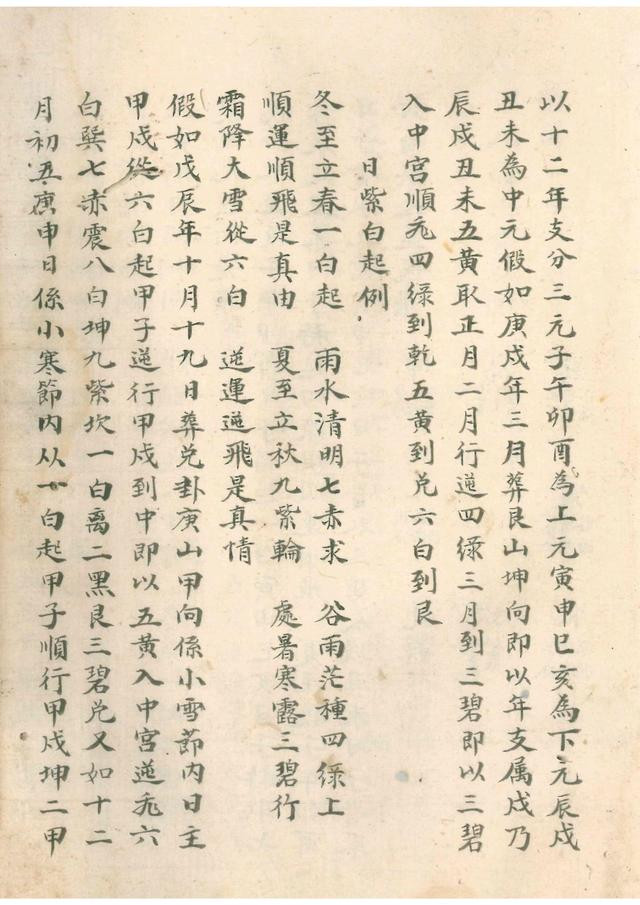 以十二年支分三元子午卯酉為上元寅申巳亥為下元辰戍
丑未為中元假如庚戍年三月葬艮山坤向即以年支属戍乃
辰戍丑未五黄取正月二月行逆四绿三月到三碧即以三碧
入中宫順飛四緑到乾五黄到兑六白到艮
日紫白起例
冬至立春一白起 雨水清明七赤求 谷雨茫種四绿上
順運順飛是真由 夏至立秋九紫輪 處暑寒露三碧行
霜降大雪從六白 逆運逆飛是真情
假如戊辰年十月十九日葬兑卦庚山甲向係小雪節内日主
甲戍從六白起甲子逆行甲戍到中即以五黄入中宫逆飛六
白巽七赤震八白坤九紫坎一白离二黑艮三碧兑又如十二
月初五庚申日係小寒節内从一白起甲子順行甲戍坤二甲